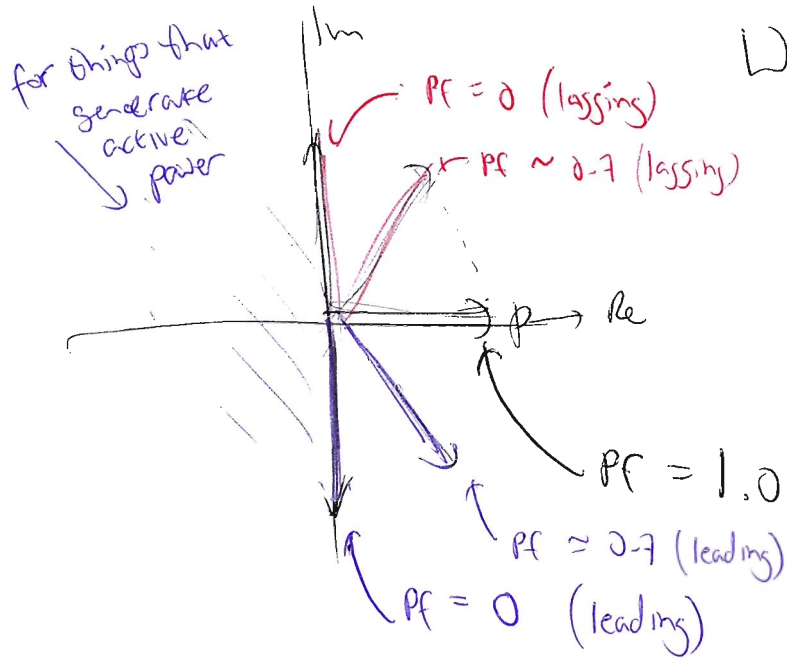 Im
for things that
generate
active
power
Pf = 0 (lagging)
Pf ~ 0.7 (lagging)
P
Re
Pf = 1.0
Pf ≈ 0.7 (leading)
Pf = 0 (leading)